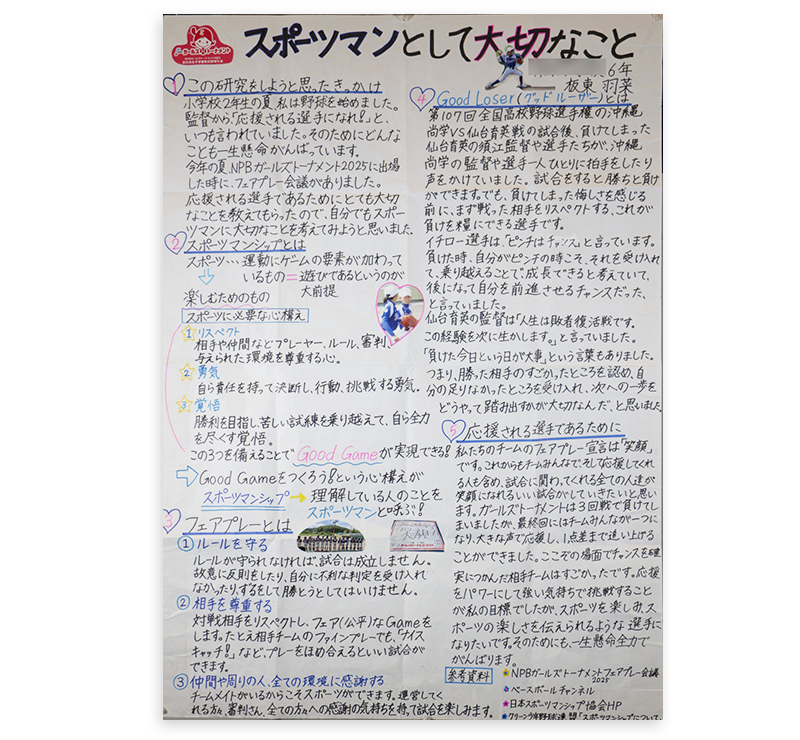 スポーツマンとして大切なこと
ガールズトーナメント
6年
板東 羽菜
1 この研究をしようと思ったきっかけ
小学校2年生の夏、私は野球を始めました。
監督から「応援される選手になれ!」と、
いつも言われていました。そのためにどんな
ことも一生懸命がんばっています。
今年の夏、NPBガールズトーナメント2025に出場
した時に、フェアプレー会議がありました。
応援される選手であるためにとても大切
なことを教えてもらったので、自分でもスポー
ツマンに大切なことを考えてみようと思いました。
2 スポーツマンシップとは
スポーツ…運動にゲームの要素が加わって
いるもの=遊びであるというのが
大前提
楽しむためのもの
スポーツに必要な心構え
1 リスペクト
相手や仲間などプレーヤー、ルール、審判、
与えられた環境を尊重する心。
2 勇気
自ら責任を持って決断し、行動、挑戦する勇気。
3 覚悟
勝利を目指し苦しい試練を乗り越えて、自ら全力
を尽くす覚悟。
この3つを備えることでGood Gameが実現できる!
Good Gameをつくろう!という心構えが
スポーツマンシップ→理解している人のことを
スポーツマンと呼ぶ!
3 フェアプレーとは
① ルールを守る
ルールが守られなければ、試合は成立しません。
故意に反則をしたり、自分に不利な判定を受け入れ
なかったり、ずるをして勝とうとしてはいけません。
② 相手を尊重する
対戦相手をリスペクトし、フェア(公平)なGameを
します。たとえ相手チームのファインプレーでも、「ナイス
キャッチ!」など、プレーをほめ合えるといい試合が
できます。
③ 仲間や周りの人、全ての環境に感謝する
チームメイトがいるからこそスポーツができます。運営してく
れる方々、審判さん、全ての方々への感謝の気持ちを持って試合を楽しみます。
笑顔
4 Good Loser(グッドルーザー)とは
第107回全国高校野球選手権の沖縄
尚学VS仙台育英戦の試合後、負けてしまった
仙台育英の須江監督や選手たちが、沖縄
尚学の監督や選手一人ひとりに拍手をしたり
声をかけていました。試合をすると勝ちと負け
ができます。でも、負けてしまった悔しさを感じる
前に、まず戦った相手をリスペクトする、これが
負けを糧にできる選手です。
イチロー選手は、「ピンチはチャンス」と言っています。
負けた時、自分がピンチの時こそ、それを受け入れ
て、乗り越えることで成長できると考えていて、
後になって自分を前進させるチャンスだった、
と言っていました。
仙台育英の監督は「人生は敗者復活戦です。
この経験を次に生かします。」と言っていました。
「負けた今日という日が大事」という言葉もありました。
つまり、勝った相手のすごかったところを認め、自
分の足りなかったところを受け入れ、次への一歩を
どうやって踏み出すかが大切なんだ、と思いました。
5 応援される選手であるために
私たちのチームのフェアプレー宣言は「笑顔」
です。これからもチームみんなで、そして応援してくれ
る人も含め、試合に関わってくれる全ての人達が
笑顔になれるいい試合がしていきたいと思い
ます。ガールズトーナメントは3回戦で負けてし
まいましたが、最終回にはチームみんなが一つに
なり、大きな声で応援し、1点差まで追い上げる
ことができました。ここぞの場面でチャンスを確
実につかんだ相手チームはすごかったです。応援
をパワーにして強い気持ちで挑戦すること
が私の目標でしたが、スポーツを楽しみ、ス
ポーツの楽しさを伝えられるような選手に
なりたいです。そのためにも、一生懸命全力で
がんばります。
参考資料
NPBガールズトーナメントフェアプレー会議
2025
ベースボールチャンネル
日本スポーツマンシップ協会HP